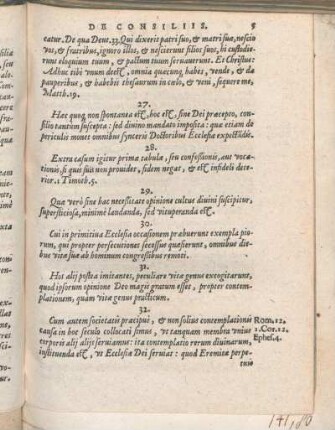 DE CONSILIIS. 5
catur. De qua Deut. 33. Qui dixerit patri suo, & matri suæ, nescio
vos, & fratribus, ignoro illos, & nescierunt filios suos, hi custodie-
runt eloquium tuum, & pactum tuum servaverunt. Et Christus:
Adhuc tibi vnum deest, omnia quæcunq; habes, vende, & da
pauperibus, & habebis thesaurum in cœlo, & veni, sequere me,
Matth. 19.
27.
Hæc quoq; non spontanea est, hoc est, sine Dei præcepto, con-
silio tantùm suscepta: sed divino mandato imposita: qua etiam de
periculis monet omnibus synceris Doctoribus Ecclesia expectandis.
28.
Extra casum igitur primæ tabulæ, seu confessionis, aut voca-
tionis. si quis suis non provider, fidem negat, & est infideli dete-
rior. 1 Timoth. 5.
29.
Quæ verò sine hac necessitate opinione cultus divini suscipitur,
superstitiosa, minimè laudanda, sed vituperanda est.
30.
Cui in primitiva Ecclesia occasionem præbuerunt exempla pio-
rum, qui propter persecutiones secessus quæsierunt, omnibus die-
bus vitæ suæ ab hominum congressibus remoti.
31.
Hos alij postea imitantes, peculiare vitæ genus excogitarunt,
quod ipsorum opinione Deo magis gratum esset, propter contem-
plationem, quàm vitæ genus practicum.
32.
Cum autem societatis præcipuè, & non solius contemplationis
causa in hoc seculo collocati simus, vt tanquam membra vnius
corporis alij alijs serviamus: ita contemplatio rerum divinarum,
instituenda est, vt Ecclesiæ Dei serviat: quod Eremitæ perpe-
tuis
Rom. 12.
1. Cor. 12.
Ephes. 4.